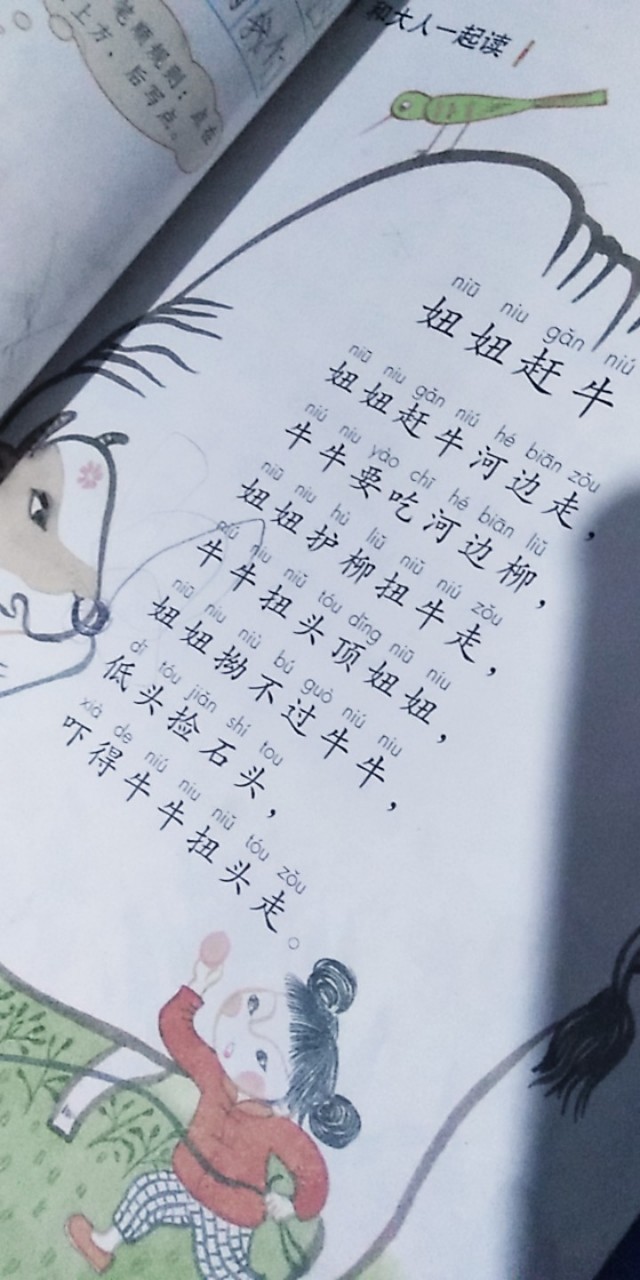 规则：点在
上方，后写点。
我们
和大人一起读
niū niu gǎn niú
妞妞赶牛
niū niu gǎn niú hé biān zǒu
妞妞赶牛河边走，
niú niu yào chī hé biān liǔ
牛牛要吃河边柳，
niū niu hù liǔ niǔ niú zǒu
妞妞护柳扭牛走，
niú niu niǔ tóu dǐng niū niu
牛牛扭头顶妞妞，
niū niu niù bú guò niú niu
妞妞拗不过牛牛，
dī tóu jiǎn shí tou
低头捡石头，
xià de niú niu niǔ tóu zǒu
吓得牛牛扭头走。